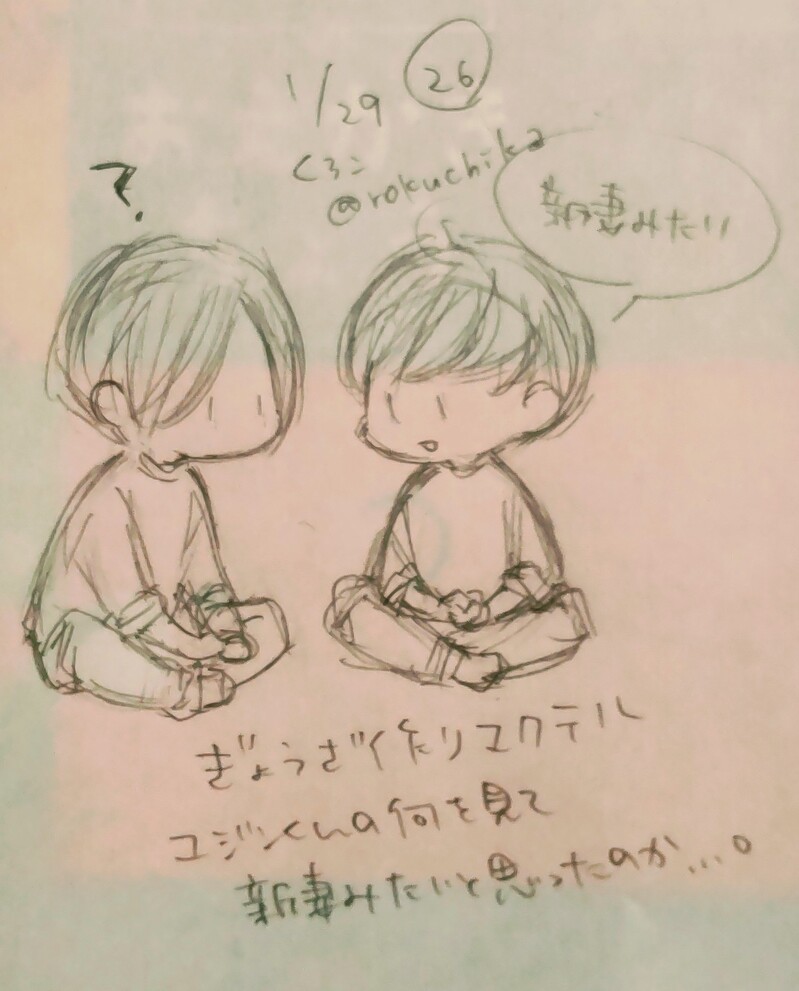 1/29 26
くろこ
@rokuchika
?
新妻みたい
ぎょうざ作りユクテル
ユジンくんの何を見て
新妻みたいと思ったのか…。